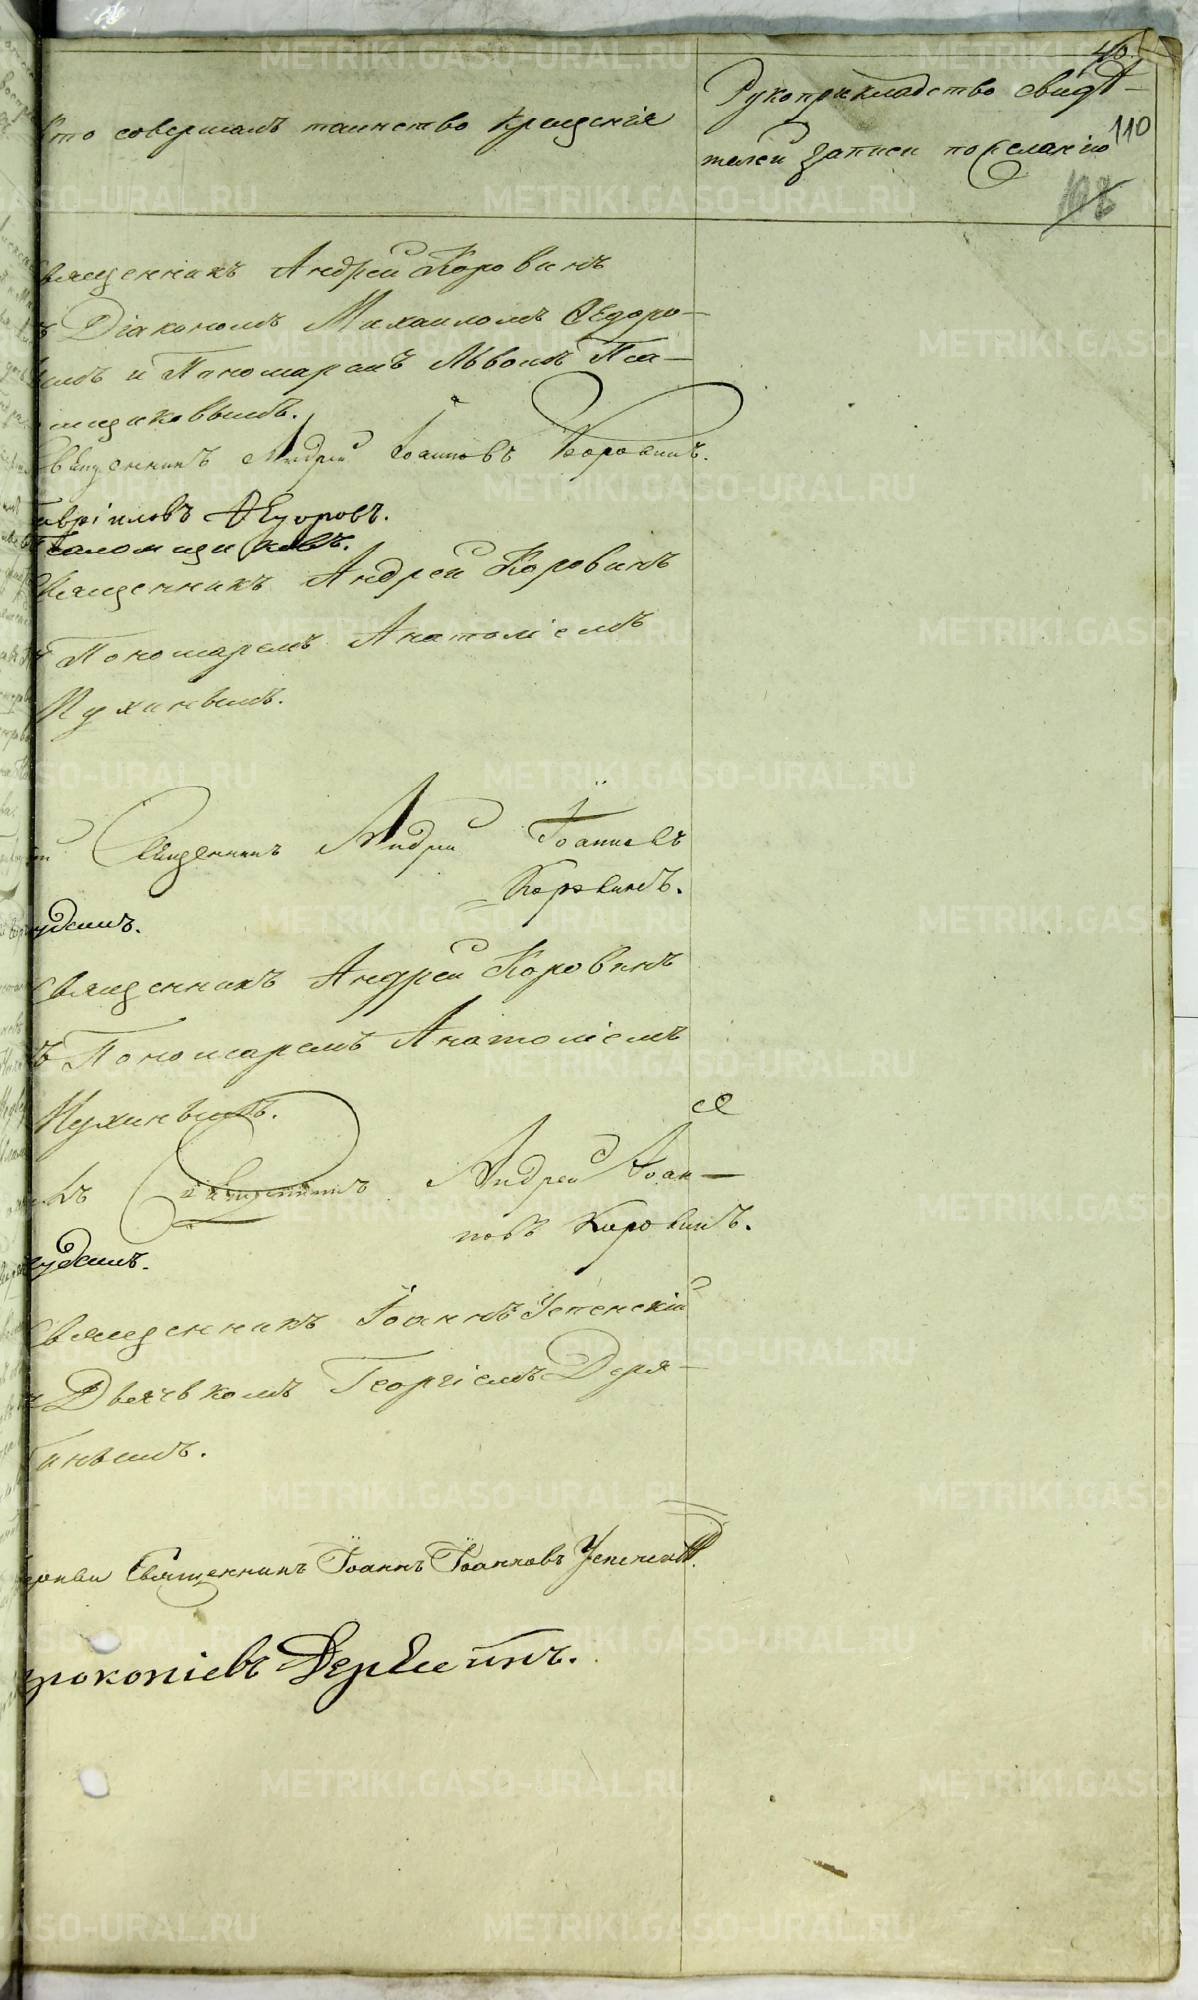 46.
Кто совершалъ таинство крещенія
Рукоприкладство свидѣ-
телей записи по желанію
110
108
Священникъ Андрей Коровинъ
съ Діакономъ Михаиломъ Ѳедоро-
вымъ и Пономаремъ Львомъ
Священникъ Андрей Іоанновъ Коровинъ.
Гавріиловъ Ѳедоровъ.
Священникъ Андрей Коровинъ
съ Пономаремъ Анатоліемъ
Мухинымъ.
Священникъ Андрей Іоанновъ
Коровинъ.
Священникъ Андрей Коровинъ
съ Пономаремъ Анатоліемъ
Мухинымъ.
Священникъ Андрей Іоан-
новъ Коровинъ.
Священникъ Іоаннъ Успенскій
съ Дьячкомъ Георгіемъ Деря-
бинымъ.
Священникъ Іоаннъ Іоанновъ Успенскій.
Прокопіевъ Дерябинъ.
METRIKI.GASO-URAL.RU